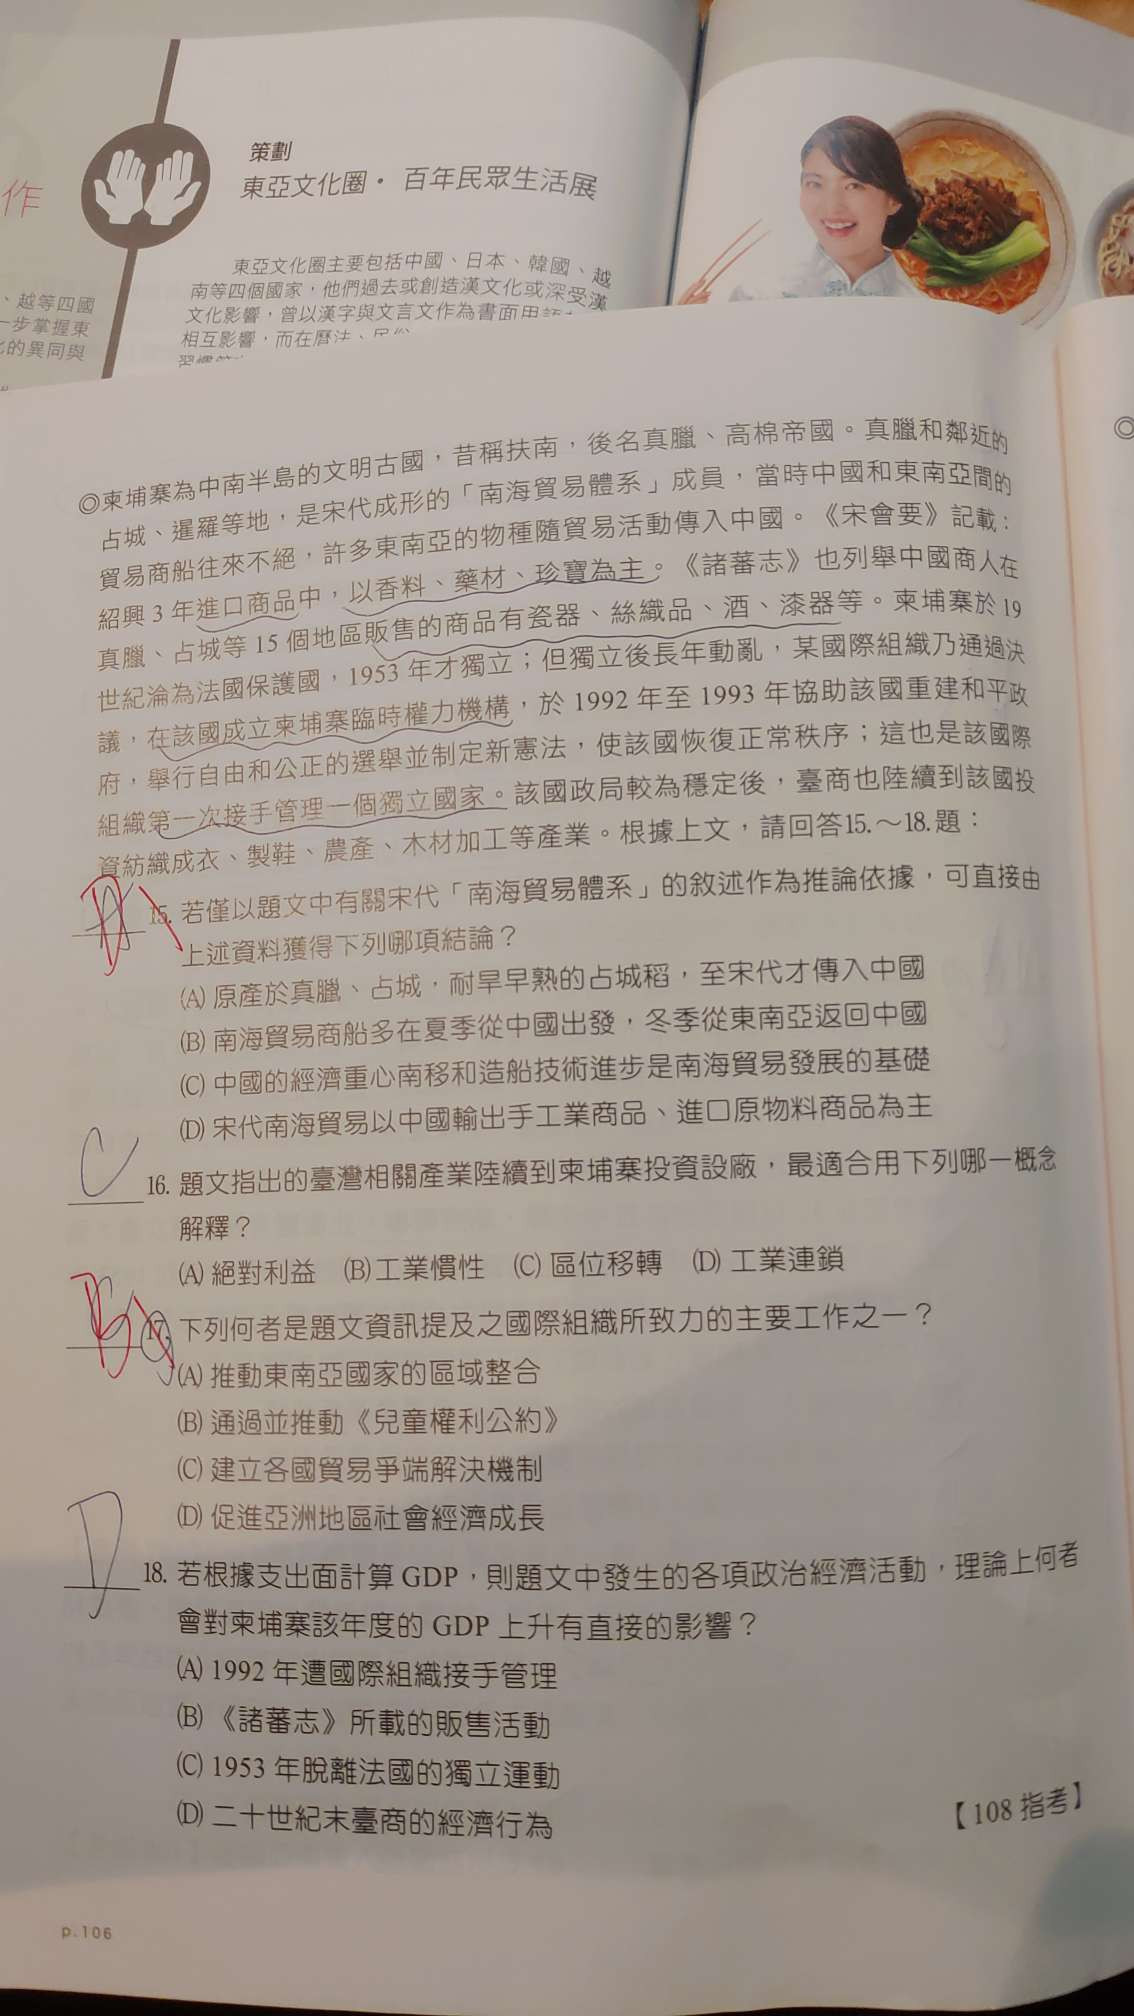 作
策劃
東亞文化圈・百年民眾生活展
東亞文化圈主要包括中國、日本、韓國、越
南等四個國家，他們過去或創造漢文化或深受漢
文化影響，曾以漢字與文言文作為書面用語
相互影響，而在曆法、民俗
習慣
、越等四國
一步掌握東
化的異同與
◎柬埔寨為中南半島的文明古國，昔稱扶南，後名真臘、高棉帝國。真臘和鄰近的
占城、暹羅等地，是宋代成形的「南海貿易體系」成員，當時中國和東南亞間的
貿易商船往來不絕，許多東南亞的物種隨貿易活動傳入中國。《宋會要》記載：
紹興 3 年進口商品中，以香料、藥材、珍寶為主。《諸蕃志》也列舉中國商人在
真臘、占城等 15 個地區販售的商品有瓷器、絲織品、酒、漆器等。柬埔寨於 19
世紀淪為法國保護國，1953 年才獨立；但獨立後長年動亂，某國際組織乃通過決
議，在該國成立柬埔寨臨時權力機構，於 1992 年至 1993 年協助該國重建和平政
府，舉行自由和公正的選舉並制定新憲法，使該國恢復正常秩序；這也是該國際
組織第一次接手管理一個獨立國家。該國政局較為穩定後，臺商也陸續到該國投
資紡織成衣、製鞋、農產、木材加工等產業。根據上文，請回答15.～18.題：
D 15. 若僅以題文中有關宋代「南海貿易體系」的敘述作為推論依據，可直接由
上述資料獲得下列哪項結論？
(A) 原產於真臘、占城，耐旱早熟的占城稻，至宋代才傳入中國
(B) 南海貿易商船多在夏季從中國出發，冬季從東南亞返回中國
(C) 中國的經濟重心南移和造船技術進步是南海貿易發展的基礎
(D) 宋代南海貿易以中國輸出手工業商品、進口原物料商品為主
C 16. 題文指出的臺灣相關產業陸續到柬埔寨投資設廠，最適合用下列哪一概念
解釋？
(A) 絕對利益 (B) 工業慣性 (C) 區位移轉 (D) 工業連鎖
B 17. 下列何者是題文資訊提及之國際組織所致力的主要工作之一？
(A) 推動東南亞國家的區域整合
(B) 通過並推動《兒童權利公約》
(C) 建立各國貿易爭端解決機制
(D) 促進亞洲地區社會經濟成長
D 18. 若根據支出面計算 GDP，則題文中發生的各項政治經濟活動，理論上何者
會對柬埔寨該年度的 GDP 上升有直接的影響？
(A) 1992 年遭國際組織接手管理
(B) 《諸蕃志》所載的販售活動
(C) 1953 年脫離法國的獨立運動
(D) 二十世紀末臺商的經濟行為
【108 指考】
p.106
◎